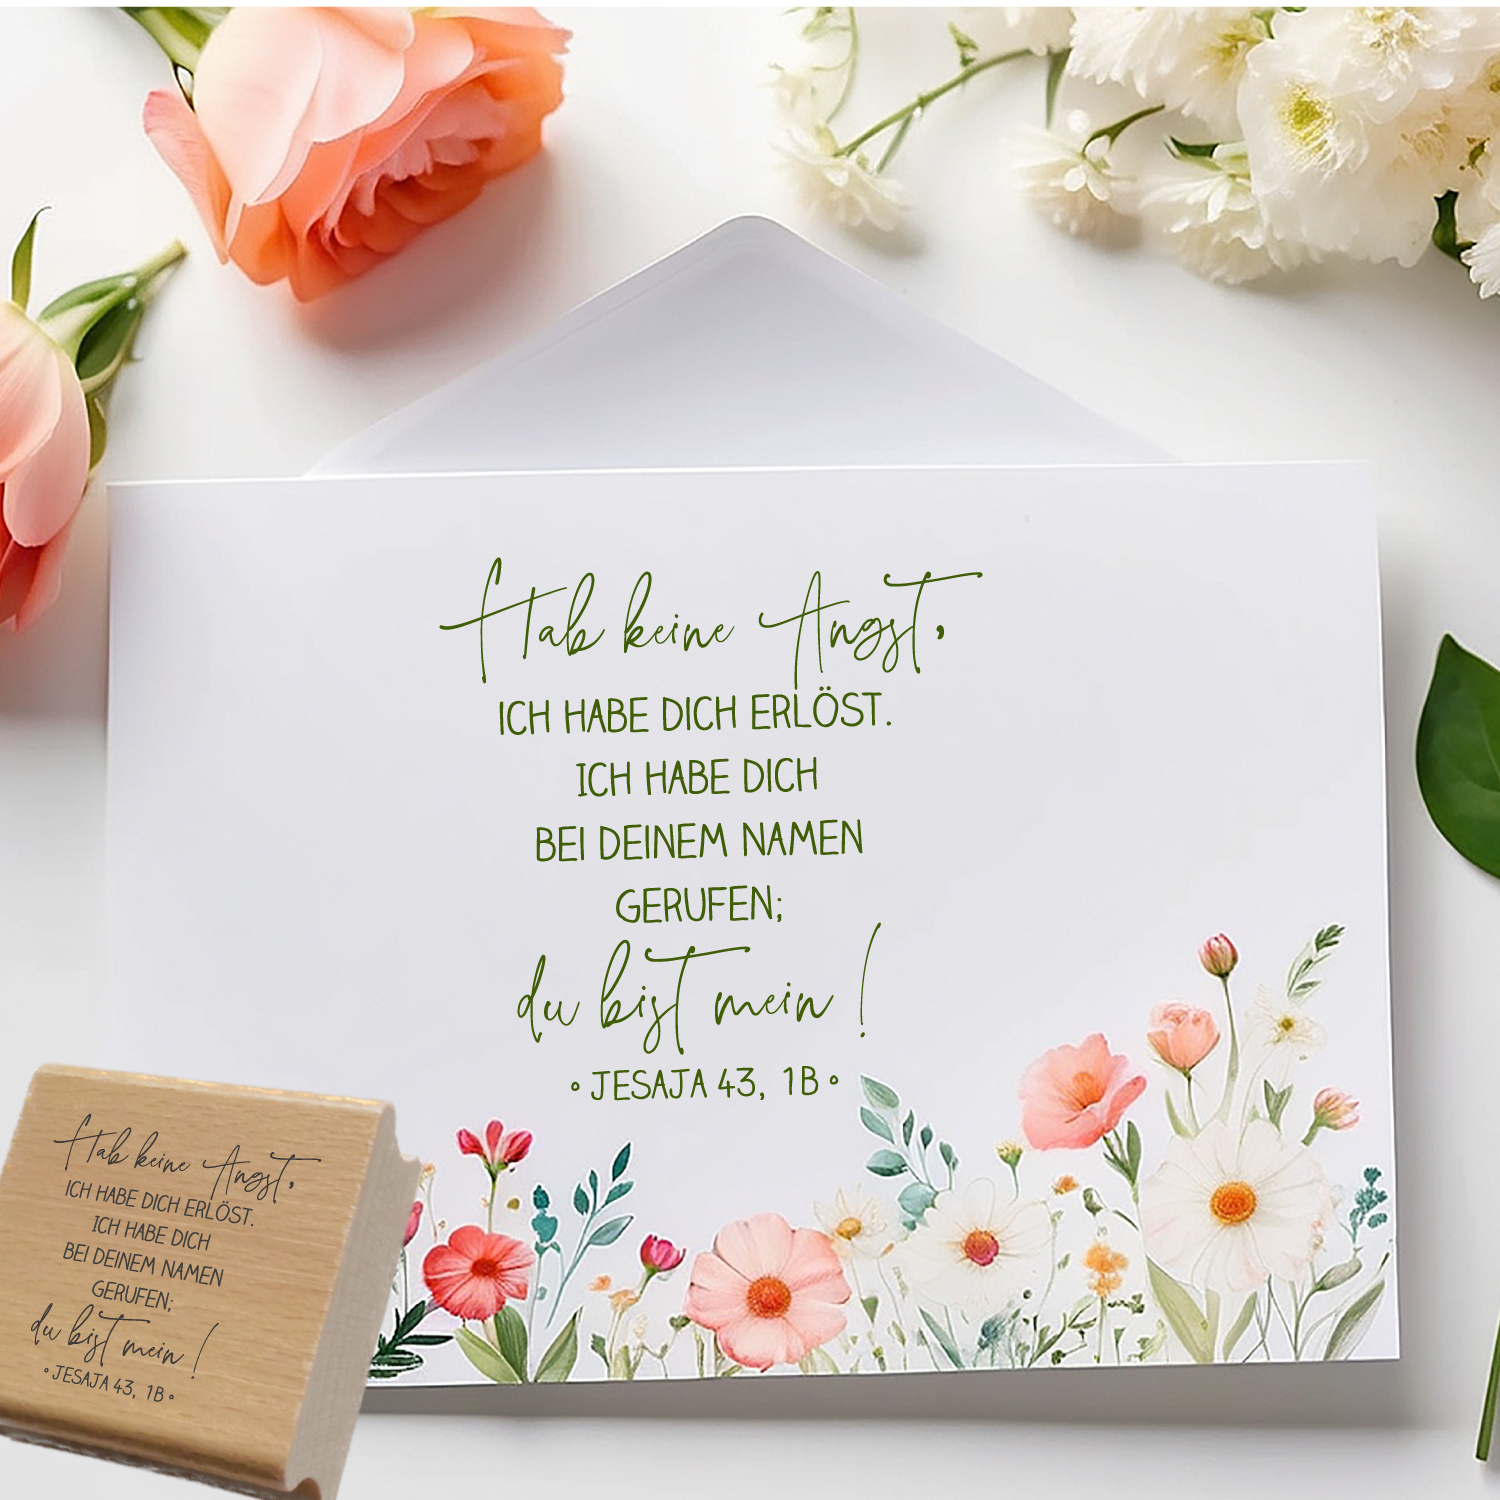 Hab keine Angst,
ICH HABE DICH ERLÖST.
ICH HABE DICH
BEI DEINEM NAMEN
GERUFEN;
du bist mein!
° JESAJA 43, 1B °
Hab keine Angst,
ICH HABE DICH ERLÖST.
ICH HABE DICH
BEI DEINEM NAMEN
GERUFEN;
du bist mein!
° JESAJA 43, 1B °